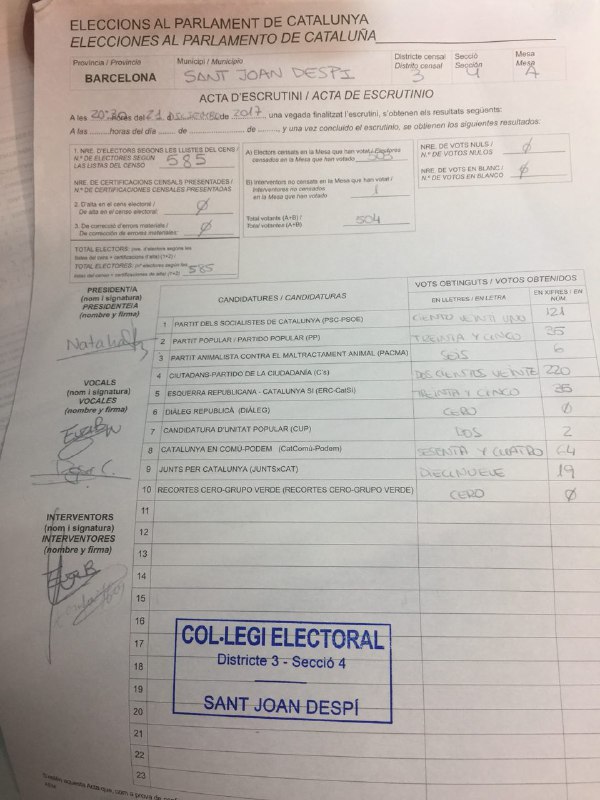 ELECCIONS AL PARLAMENT DE CATALUNYA
ELECCIONES AL PARLAMENTO DE CATALUÑA
Província / Provincia Municipi / Municipio Districte censal Secció Mesa
Distrito censal Sección Mesa
BARCELONA SANT JOAN DESPÍ 3 4
ACTA D'ESCRUTINI / ACTA DE ESCRUTINIO
A les 20:30 hores del 21 DICIEMBRE de 2017, una vegada finalitzat l'escrutini, s'obtenen els resultats següents:
A las horas del día de de , y una vez concluido el escrutinio, se obtienen los siguientes resultados:
1. NRE. D'ELECTORS SEGONS LES LLISTES DEL CENS /
N.º DE ELECTORES SEGÚN
LAS LISTAS DEL CENSO 585
NRE. DE CERTIFICACIONS CENSALS PRESENTADES /
N.º DE CERTIFICACIONES CENSALES PRESENTADAS
2. D'alta en el cens electoral /
De alta en el censo electoral: Ø
3. De correcció d'errors materials /
De corrección de errores materiales: Ø
TOTAL ELECTORS: (nre. d'electors segons les
llistes del cens + certificacions d'alta) (1+2) /
TOTAL ELECTORES: (nº electores según las
listas del censo + certificaciones de alta) (1+2) 585
A) Electors censats en la Mesa que han votat / Electores
censados en la Mesa que han votado 503
B) Interventors no censats en la Mesa que han votat /
Interventores no censados
en la Mesa que han votado 1
Total votants (A+B) /
Total votantes (A+B) 504
NRE. DE VOTS NULS /
N.º DE VOTOS NULOS Ø
NRE. DE VOTS EN BLANC /
N.º DE VOTOS EN BLANCO Ø
PRESIDENT/A
(nom i signatura)
PRESIDENTE/A
(nombre y firma)
Natalia
VOCALS
(nom i signatura)
VOCALES
(nombre y firma)
INTERVENTORS
(nom i signatura)
INTERVENTORES
(nombre y firma)
CANDIDATURES / CANDIDATURAS VOTS OBTINGUTS / VOTOS OBTENIDOS
EN LLETRES / EN LETRA EN XIFRES / EN NÚM.
1 PARTIT DELS SOCIALISTES DE CATALUNYA (PSC-PSOE) CIENTO VEINTI UNO 121
2 PARTIT POPULAR / PARTIDO POPULAR (PP) TREINTA Y CINCO 35
3 PARTIT ANIMALISTA CONTRA EL MALTRACTAMENT ANIMAL (PACMA) SEIS 6
4 CIUTADANS-PARTIDO DE LA CIUDADANÍA (C's) DOSCIENTAS VEINTE 220
5 ESQUERRA REPUBLICANA - CATALUNYA SÍ (ERC-CatSí) TREINTA Y CINCO 35
6 DIÀLEG REPUBLICÀ (DIÀLEG) CERO Ø
7 CANDIDATURA D'UNITAT POPULAR (CUP) DOS 2
8 CATALUNYA EN COMÚ-PODEM (CatComú-Podem) SESENTA Y CUATRO 64
9 JUNTS PER CATALUNYA (JUNTSxCAT) DIECINUEVE 19
10 RECORTES CERO-GRUPO VERDE (RECORTES CERO-GRUPO VERDE) CERO Ø
11
12
13
14
15
16
17
18
19
20
21
22
23
COL·LEGI ELECTORAL
Districte 3 - Secció 4
SANT JOAN DESPÍ